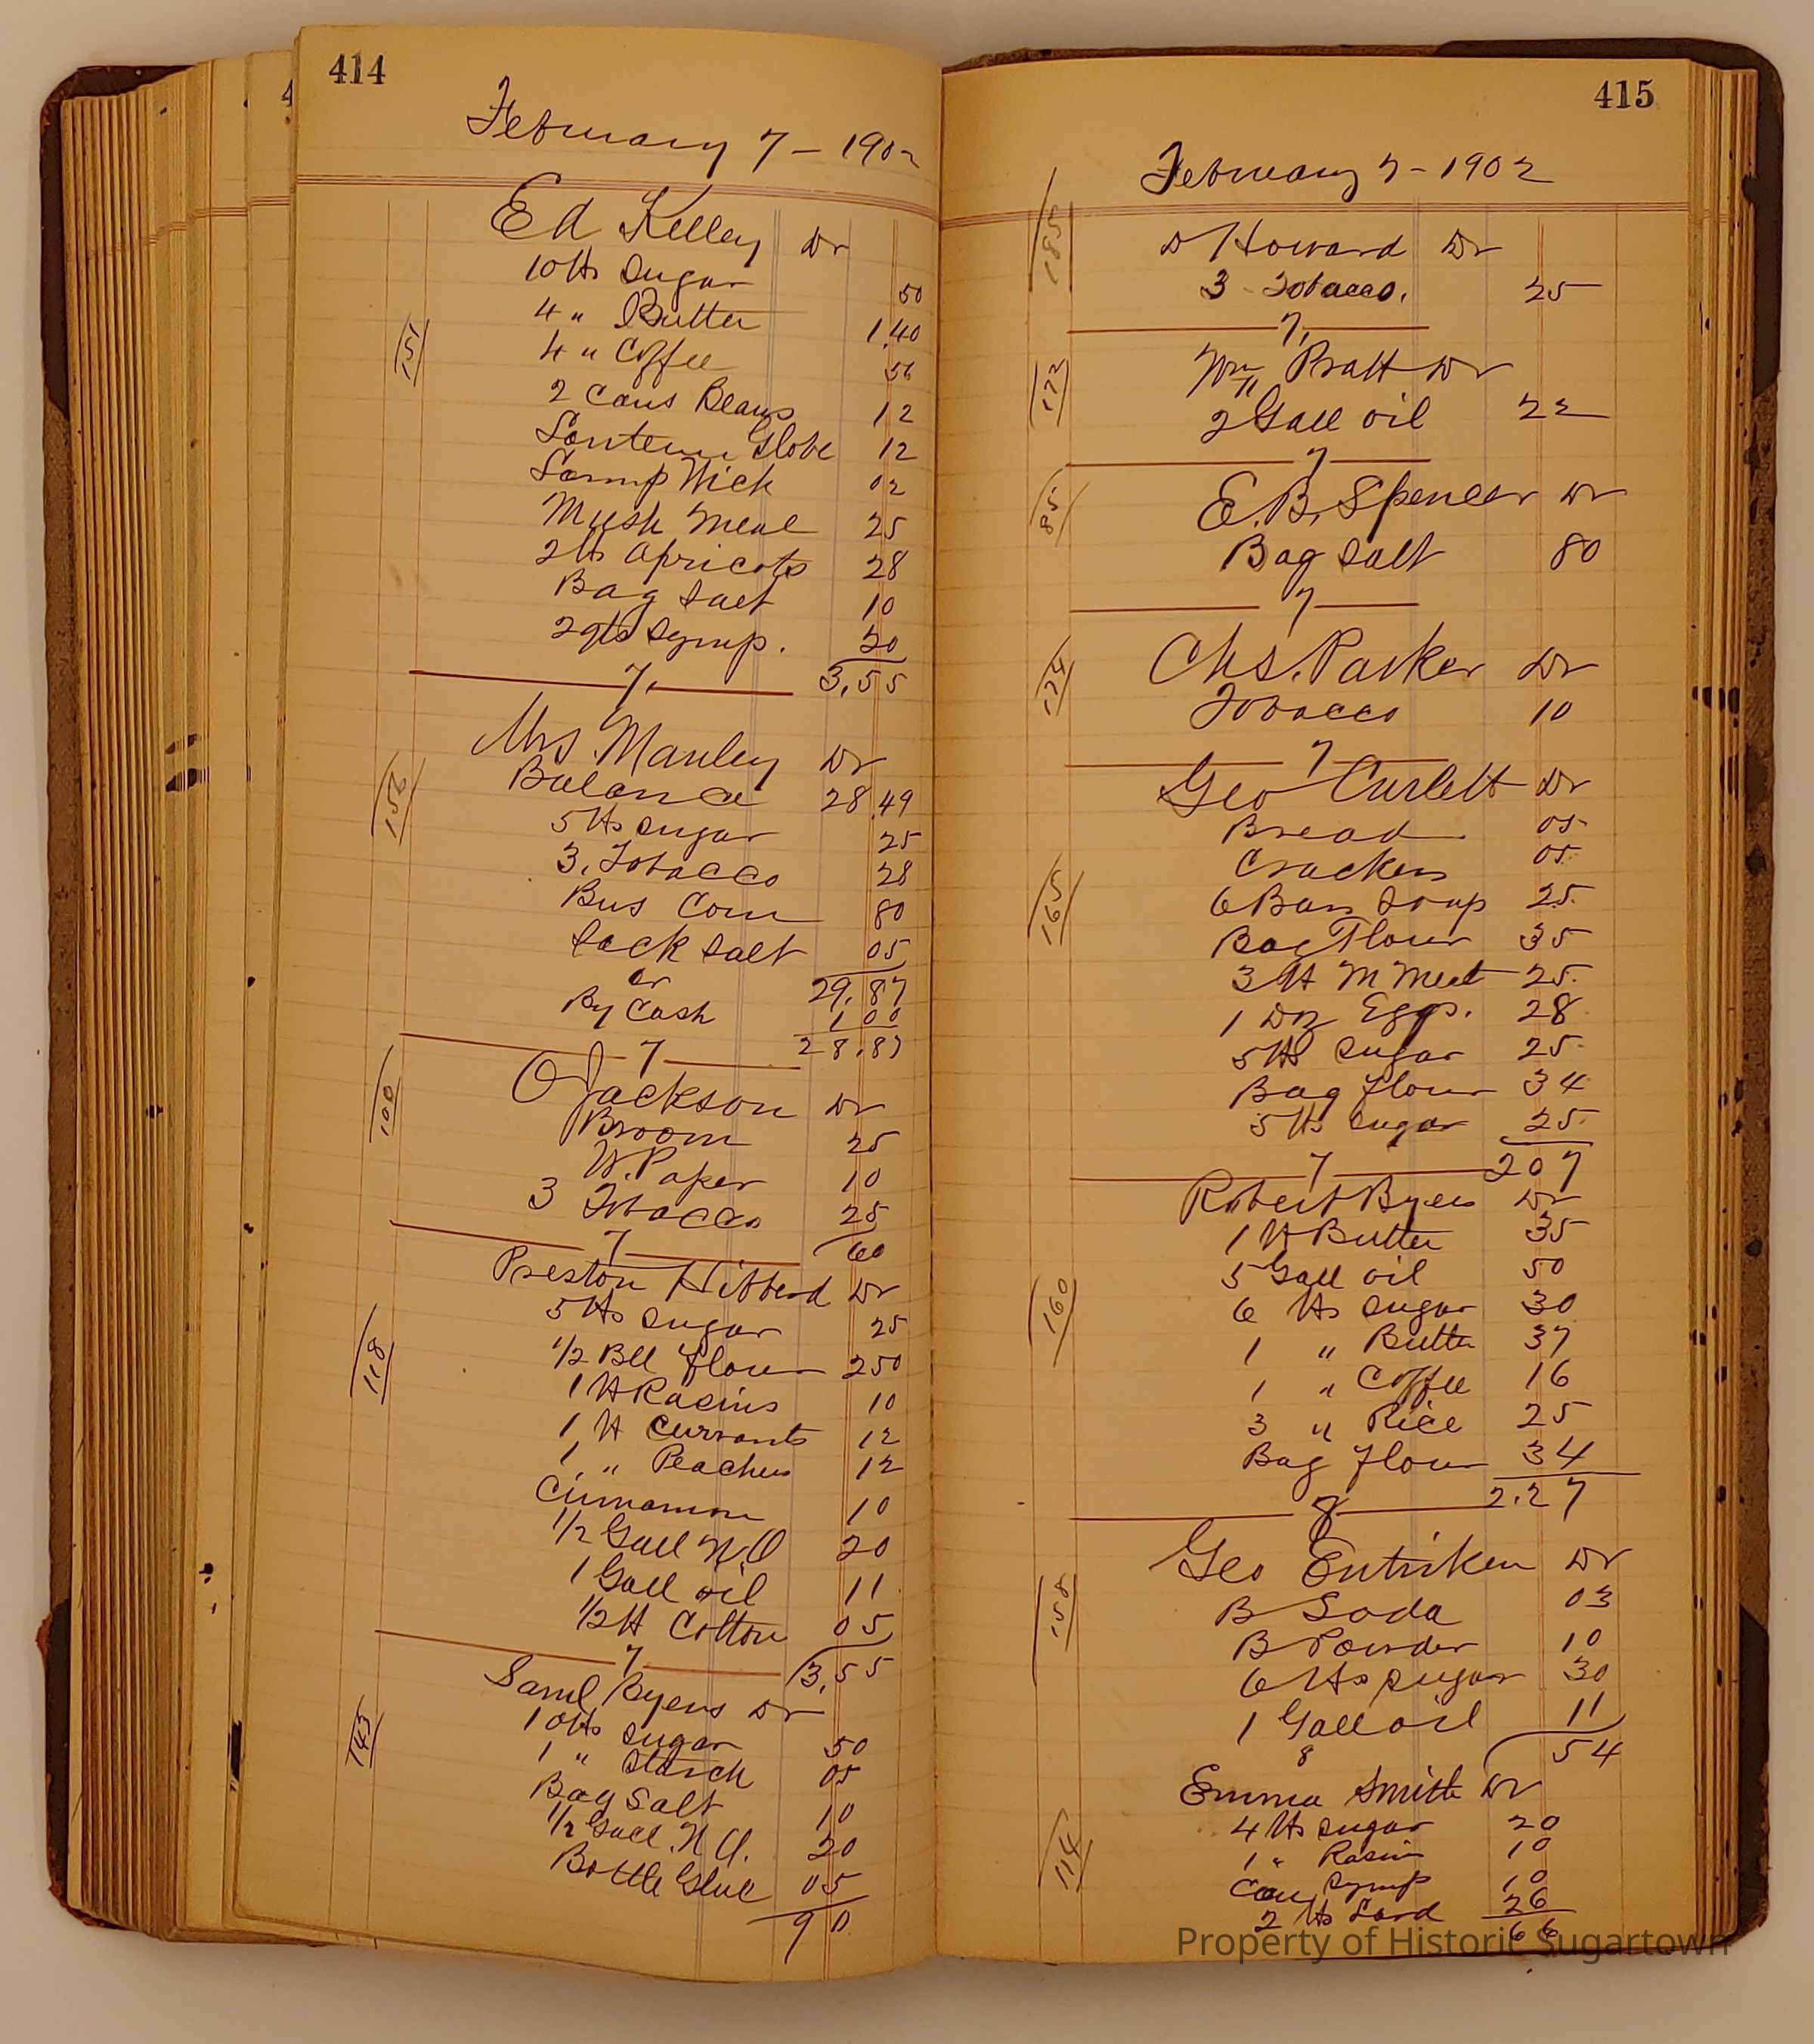 414
February 7 - 1902
Ed Kelley Dr
10 lbs Sugar 50
4 " Butter 1.40
4 " Coffee 56
2 Cans Beans 12
Lantern Globe 12
Lamp Wick 02
Mush Meal 25
2 lbs Apricots 28
Bag Salt 10
2 qts Syrup. 20
7. 3.55
151
Mrs Manley Dr
Balance 28.49
5 lbs Sugar 25
3. Tobacco 28
Bus Corn 80
Sack Salt 05
Cr 29.87
By Cash 1 00
7 28.87
156
O Jackson Dr
Broom 25
W. Paper 10
3 Tobacco 25
7 60
100
Preston Hibberd Dr
5 lbs Sugar 25
1/2 Bll flour 250
1 lb Rasins 10
1 lb Currants 12
1 " Peaches 12
Cinnamon 10
1/2 Gall N.O 20
1 Gall oil 11
1/2 lb Cotton 05
7 3.55
118
Saml Byers Dr
10 lbs Sugar 50
1 " Starch 05
Bag Salt 10
1/2 Gall. N O. 20
Bottle Glue 05
90
143
415
February 7 - 1902
185
D Howard Dr
3 Tobacco. 25
7.
172
Wm Pratt Dr
2 Gall oil 22
7
85
E. B. Spencer Dr
Bag Salt 80
7
124
Chs. Parker Dr
Tobacco 10
7
Geo Curlett Dr
Bread 05
Crackers 05
6 Bars Soap 25
Bag Flour 35
3 lb M Meat 25
1 Doz Eggs. 28
5 lbs Sugar 25
Bag flour 34
5 lbs Sugar 25
7 207
165
Robert Byers Dr
1 lb Butter 35
5 Gall oil 50
6 lbs Sugar 30
1 " Butter 37
1 " Coffee 16
3 " Rice 25
Bag flour 34
8 2.27
160
Geo Entriken Dr
B Soda 03
B Powder 10
6 lbs Sugar 30
1 Gall oil 11
8 54
158
Emma Smith Dr
4 lbs Sugar 20
1 " Rasin 10
Can Syrup 10
2 lbs Lard 26
66
114
Property of Historic Sugartown